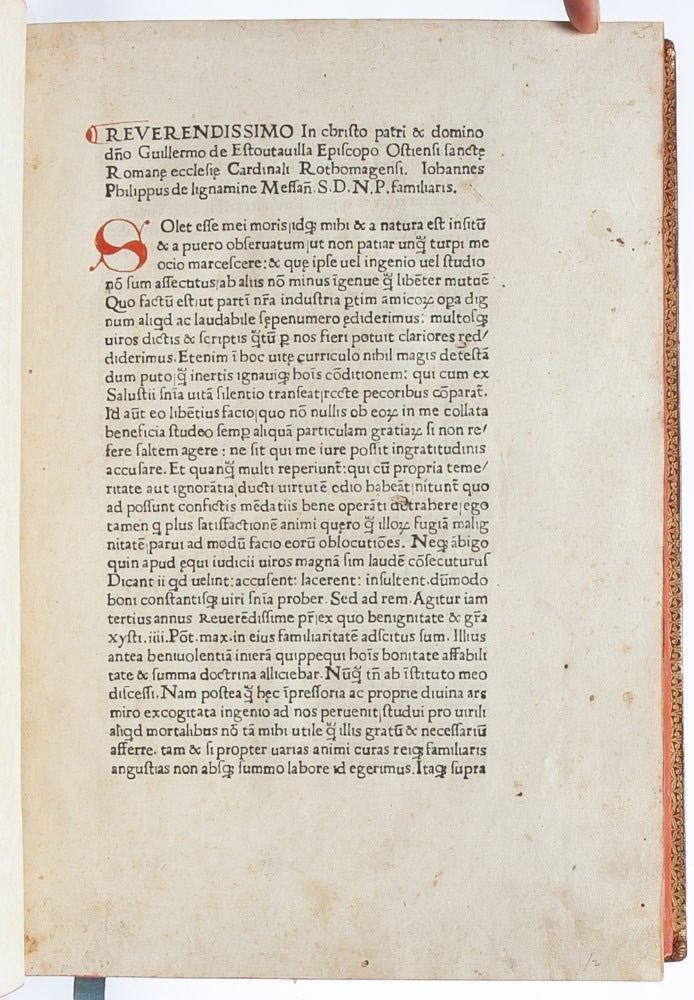 REVERENDISSIMO In christo patri & domino
dño Guillermo de Estoutauilla Episcopo Ostiensi sanctę
Romanę ecclesię Cardinali Rothomagensi. Iohannes
Philippus de lignamine Messañ. S. D. N. P. familiaris.
SOlet esse mei moris idqꝫ mihi & a natura est insitū
& a puero obseruatum ut non patiar unq̃ turpi me
ocio marcescere: & quę ipse uel ingenio uel studio
nō sum assecutus ab aliis nō minus īgenue q̃ libēter mutuē
Quo factū est ut partī nr̄a industria ꝑtim amicoꝝ oꝑa dig
num aliqd ac laudabile sępenumero ędiderimus: multosqꝫ
uiros dictis & scriptis q̃tū ꝑ nos fieri potuit clariores red/
diderimus. Etenim ī hoc uitę curriculo nihil magis detestā
dum puto q̃ inertis ignauiqꝫ hoīs cōditionem: qui cum ex
Salustii sñīa uitā silentio transeat recte pecoribus cōparat̄.
Id aūt eo libētius facio quo nō nullis ob eoꝝ in me collata
beneficia studeo semꝑ aliquā particulam gratiaꝝ si non re/
fere saltem agere: ne sit qui me iure possit ingratitudinis
accusare. Et quanq̃ multi reperiunt̄: qui cū propria teme/
ritate aut ignorātia ducti uirtutē odio habeāt nitunt̄ quo
ad possunt confictis mēdatiis bene operāti detrahere ego
tamen q plus satisfactionē animi quero q̃ illoꝝ fugiā malig
nitatē parui ad modū facio eorū oblocutiōes. Neqꝫ ābigo
quin apud ęqui iudicii uiros magnā sim laudē cōsecuturus
Dicant ii qd uelint: accusent: lacerent: insultent. dūmodo
boni constantisqꝫ uiri sñīa prober. Sed ad rem. Agitur iam
tertius annus Reuerēdissime pr̄ ex quo benignitate & gr̄a
xysti. iiii. Pōt. max. in eius familiaritatē adscitus sum. Illius
antea beniuolentiā inierā quippequi hoīs bonitate affabili
tate & summa doctrina alliciebar. Nūq̃ tñ ab īstituto meo
discessi. Nam posteaq̃ hęc īpressoria ac proprie diuina ars
miro excogitata ingenio ad nos peruenit studui pro uirili
aliqd mortalibus nō tā mihi utile q̃ illis gratū & necessariū
afferre. tam & si propter uarias animi curas reiqꝫ familiaris
angustias non absqꝫ summo labore id egerimus. Itaqꝫ supra